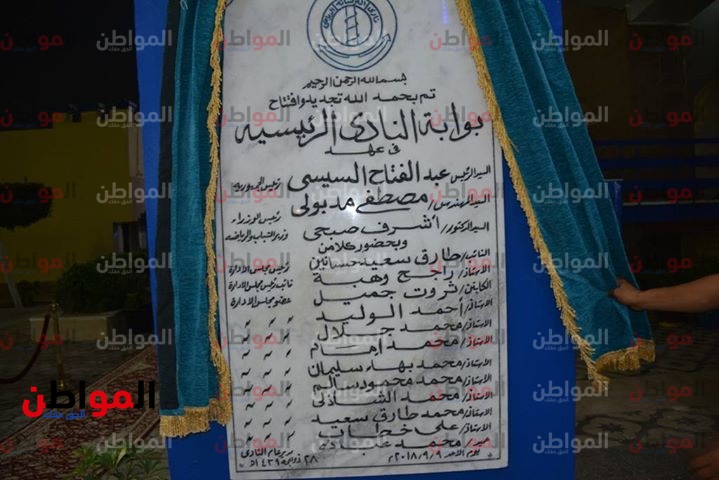 بسم الله الرحمن الرحيم
تم بحمد الله تجديد وافتتاح
بوابة النادى الرئيسية
فى عهد
السيد الرئيس/ عبد الفتاح السيسى رئيس الجمهورية
السيد المهندس/ مصطفى مدبولى رئيس الوزراء
السيد الدكتور/ أشرف صبحى وزير الشباب والرياضة
وبحضور كلا من
النائب/ طارق سعيد حسانين رئيس مجلس الادارة
الاستاذ/ راجح وهبة نائب رئيس مجلس الادارة
الكابتن/ ثروت جميل عضو مجلس الادارة
الاستاذ/ أحمد الوليد " " "
الاستاذ/ محمد جلال " " "
الاستاذ/ محمد امام " " "
الاستاذ/ محمد بهاء سليمان " " "
الاستاذ/ محمد محمود سالم " " "
الاستاذ/ محمد الشاذلى " " "
الاستاذ/ محمد طارق سعيد " " "
الاستاذ/ على " " "
محمد مدير عام النادى
يوم الاحد ٢٠١٨/٩/٩ ٢٨ ذو الحجة ١٤٣٩
المواطن